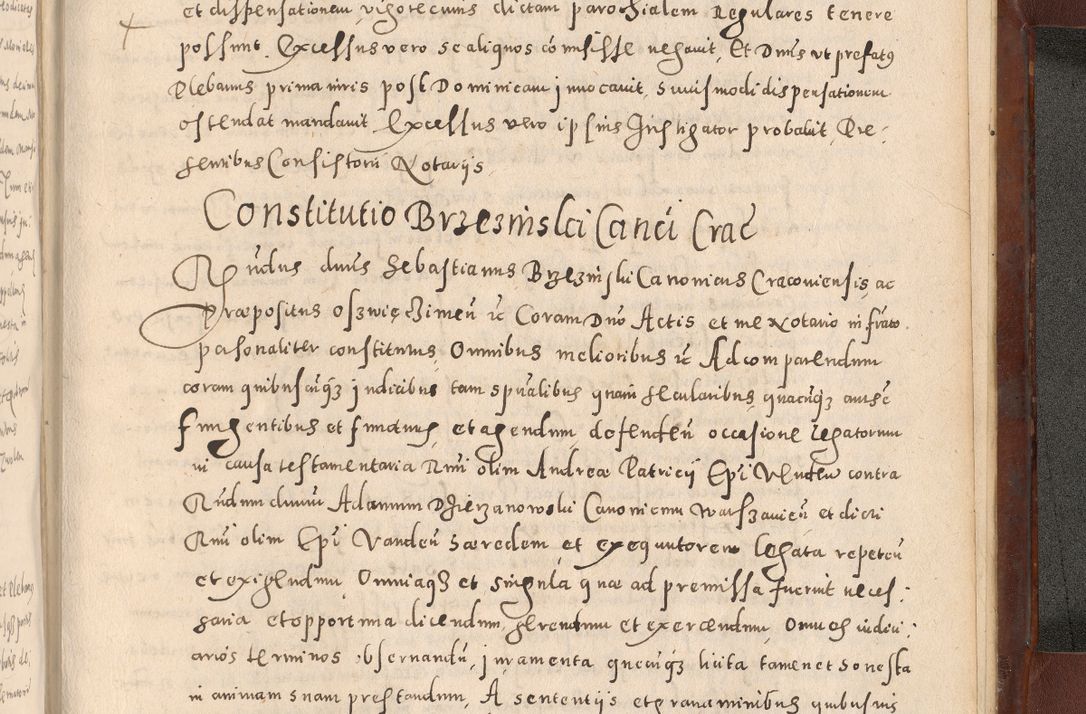 et dispensationem, vigore cuius dictam parochialem Regulares tenere
possunt. Excessus vero se aliquos comisisse negavit, Et Dnus vt prefatq
Plebanus prima iuris post Dominicam j nuocavit, suiusmodi dispensationem
ostendat mandauit Excessus vero ipsius Instigator probabit, Pre-
sentibus Consistorii Notarijs
Constitutio Brzezinski Canci Crac
Rndus dnus Sebastianus Brzezinski Canonicus Cracouiensis, ac
Præpositus oszwięczimen̄ ic̄ Coram Dno Actis et me Notario in frato
personaliter constitutus, Omnibus melioribus ic̄ Ad comparendum
coram quibuscūqz judicibus tam spūalibus quam secularibus, quacūqz autho
fungentibus et functuris, et agendum, defenden̄ occasione legatorum
in causa testamentaria Rmi olim Andreæ Patricij Epi Venden contra
Rndum dnum Adamum Dzierzanowski Canonicum Warszauien̄ et dicti
Rmi olim Epi Vanden̄ hæredem et exequutorem legata repeten̄
et exigendum, Omniaqz et singula quæ ad premissa fuerint neces:
saria et opportuna dicendum, gerendum et exercendum, Omnes iudici:
arios terminos obseruandū, juramenta quecūqz licita tamen et honesta
in animam suam prestandum, A sententijs et grauaminibus quibusuis